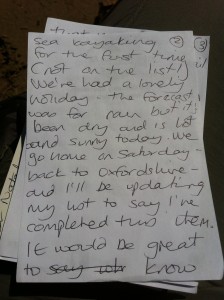 sea kayaking ②
for the first time
(not on the list!)
We've had a lovely
holiday - the forecast
was for rain but it's
been dry and is hot
and sunny today. We
go home on Saturday -
back to Oxfordshire -
and I'll be updating
my list to say I've
completed this item.
It would be great
to say know
③